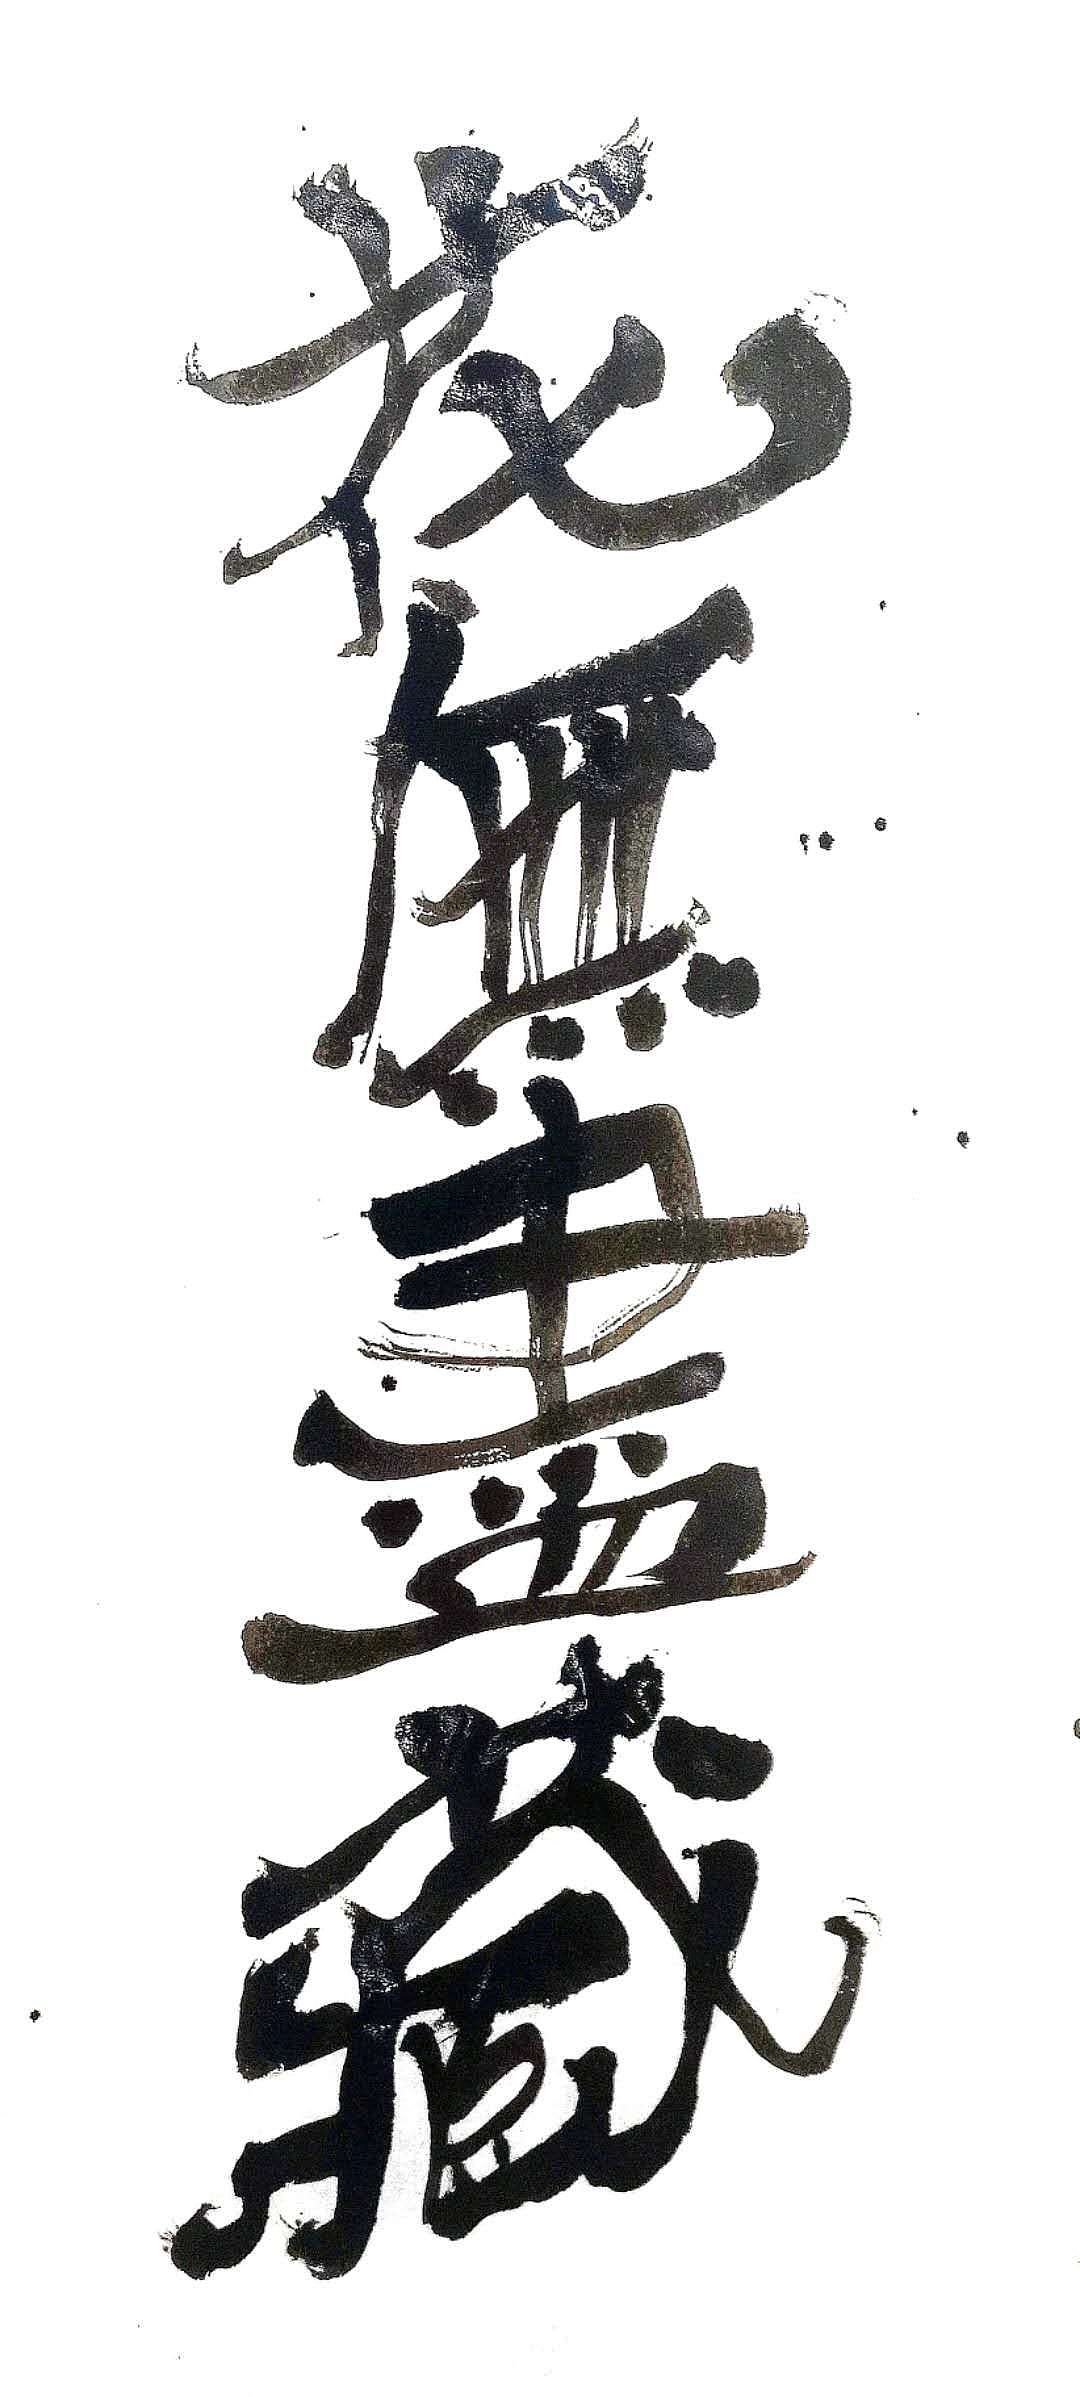 花無盡藏